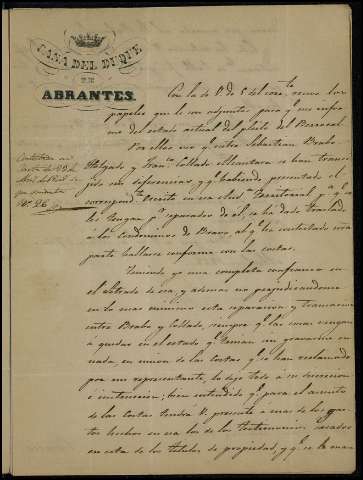 CASA DEL DUQUE
DE
ABRANTES.
Con la de V. de 5 del corr.te recibo los
papeles que le son adjuntos para q.e me informe
del estado actual del pleito del Berrocal
Por ellos veo q.e entre Sebastian Brabo
Hidalgo y Fran.co Collado Alcantara se han transigido
sus diferencias y q.e habiendo presentado el
correspond.te Escrito en esa Aud.a Territorial p.a q.e se
les tengan p.r separados de él, se ha dado traslado
á los Condominos de Bravo, al q.e ha contestado una
parte hallarse conforme con las costas.
Teniendo yo una completa confianza en
el Letrado de esa, y ademas no perjudicandome
en lo mas minimo esta separacion y transaccion
entre Brabo y Collado, siempre q.e las cosas vengan
á quedar en el estado q.e tenian sin gravarme en
nada, en union de las costas q.e se han reclamado
por mi representante, lo dejo todo á su discrecion
é instruccion; bien entendido q.e para el asunto
de las costas tendrá V. presente á mas de los gastos
hechos en esa los de los testimonios sacados
en esta de los titulos de propiedad, y q.e se le man